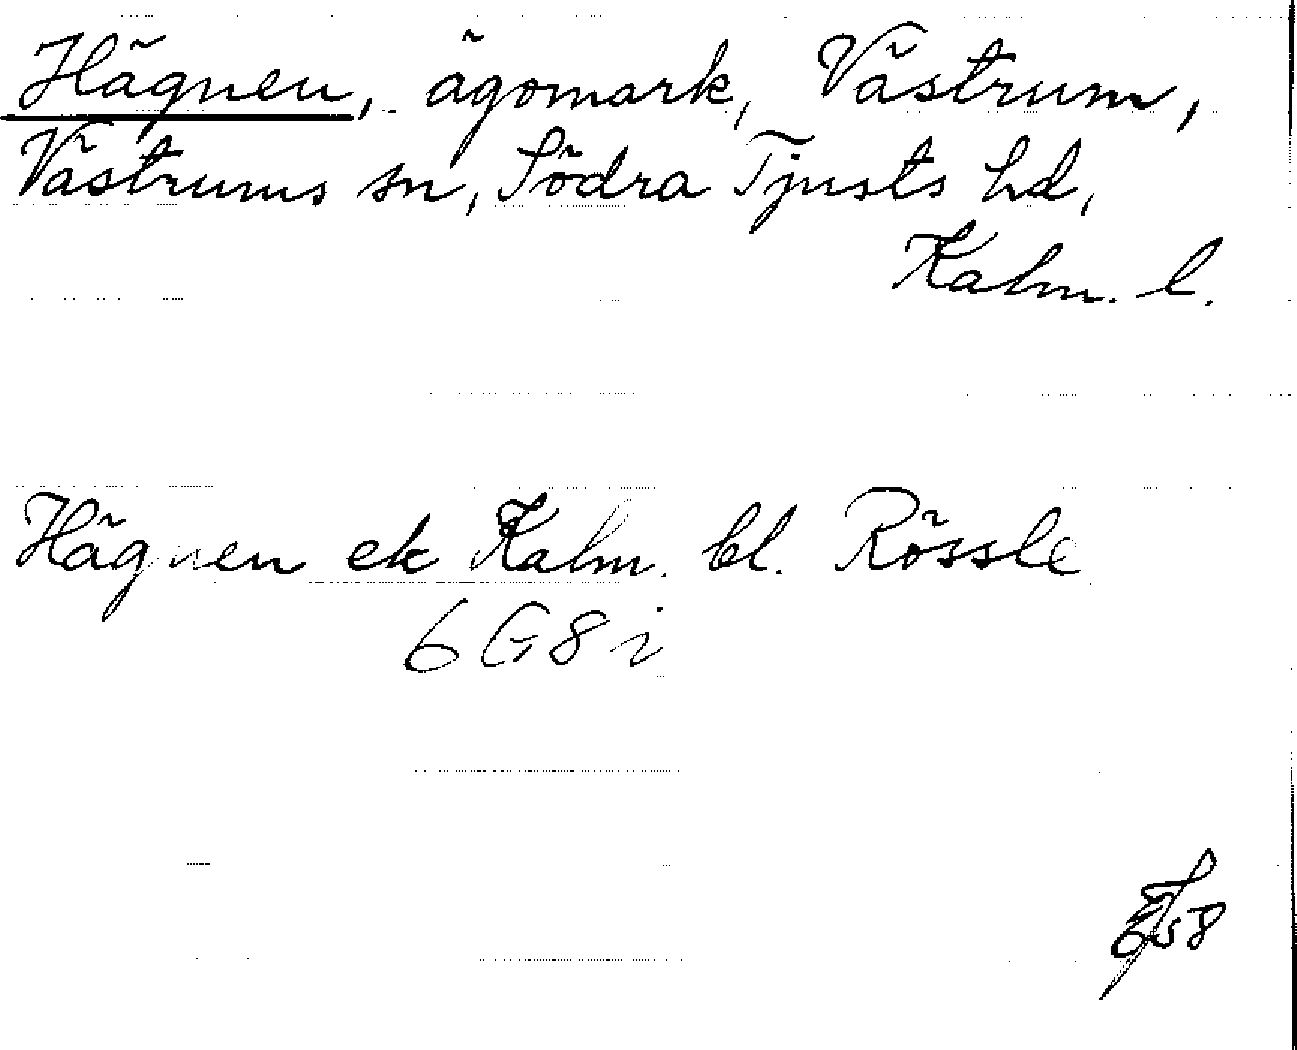 Hägnen, ägomark, Västrum,
Västrums sn, Södra Tjusts hd,
Kalm. l.
Hägnen ek Kalm. bl. Rössle
6 G 8 i